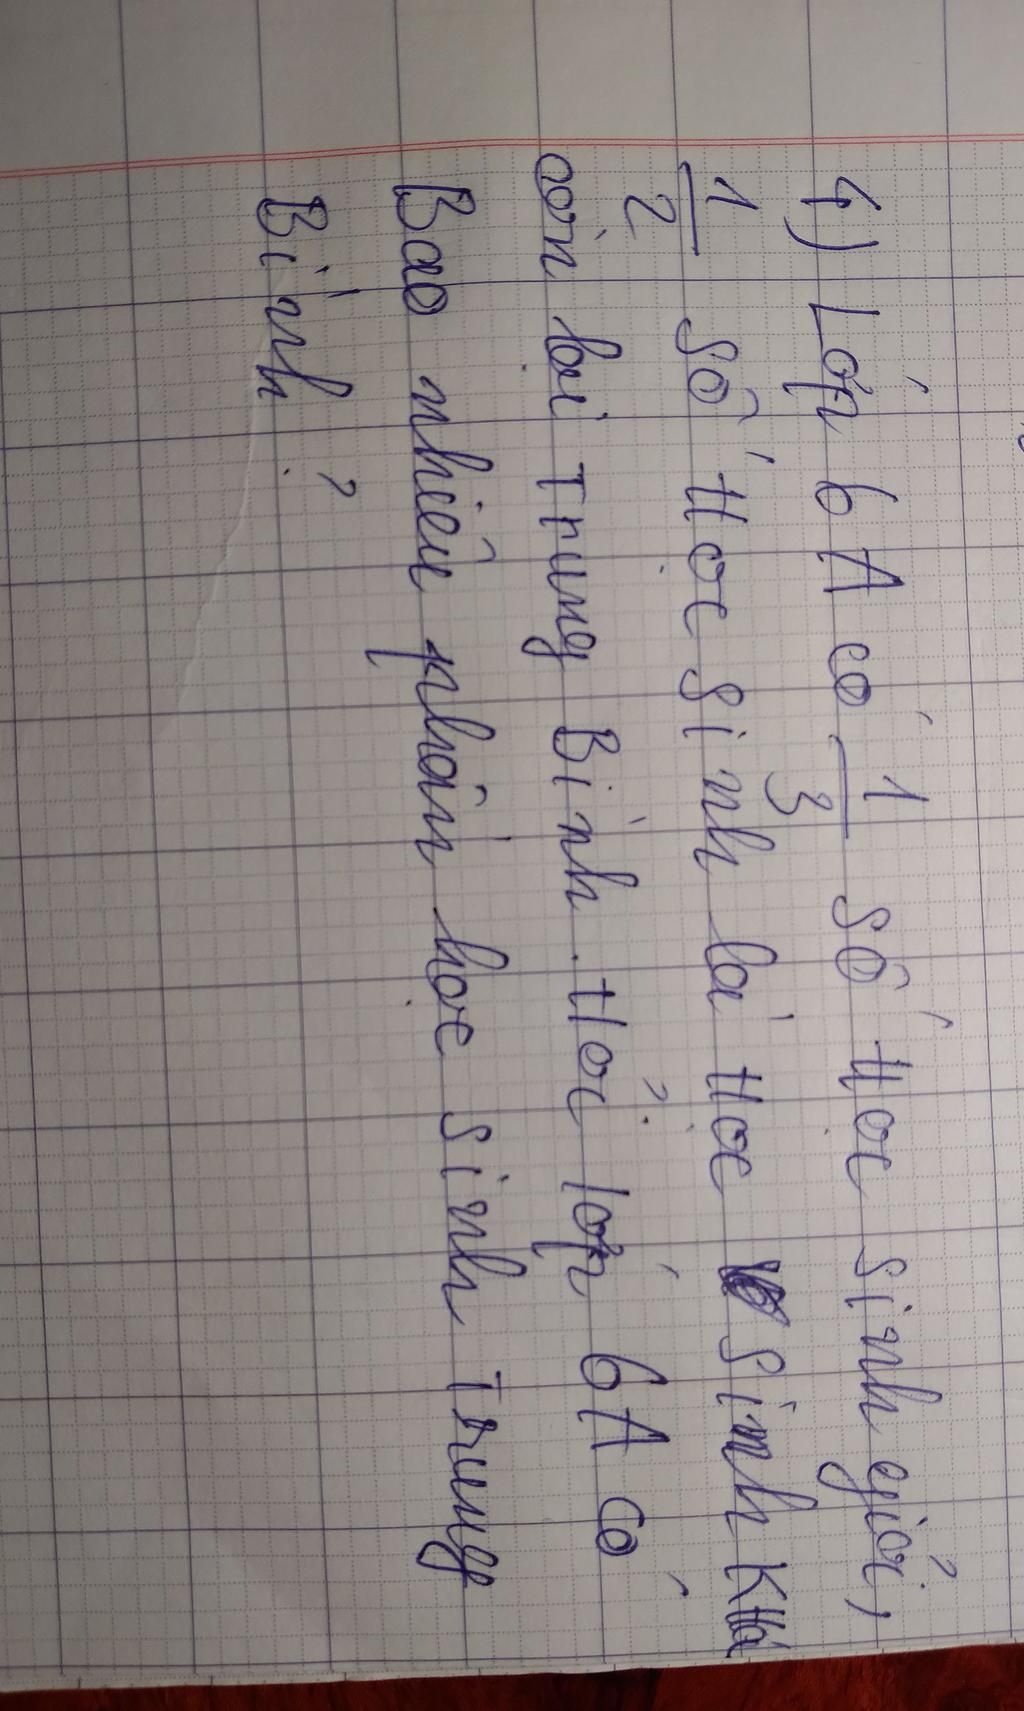 4) Lớp 6A có 1/3 số Học sinh giỏi,
1/2 số Học sinh là Học sinh Khá
còn lại Trung Bình. Hỏi lớp 6A có
Bao nhiêu phần học sinh Trung
Bình ?